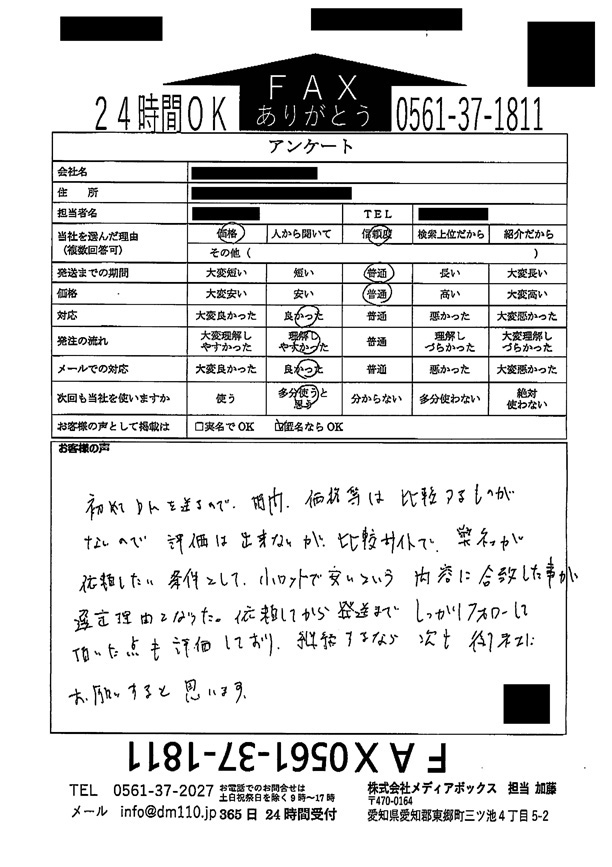 FAX
ありがとう
24時間OK 0561-37-1811
アンケート
会社名
住 所
担当者名 TEL
当社を選んだ理由(複数回答可) 価格 人から聞いて 信頼度 検索上位だから 紹介だから
その他( )
発送までの期間 大変短い 短い 普通 長い 大変長い
価格 大変安い 安い 普通 高い 大変高い
対応 大変良かった 良かった 普通 悪かった 大変悪かった
発注の流れ 大変理解しやすかった 理解しやすかった 普通 理解しづらかった 大変理解しづらかった
メールでの対応 大変良かった 良かった 普通 悪かった 大変悪かった
次回も当社を使いますか 使う 多分使うと思う 分からない 多分使わない 絶対使わない
お客様の声として掲載は □実名でOK ☑匿名ならOK
お客様の声
初めてDMを送るので、期間、価格等は比較するものが
ないので評価は出来ないが、比較サイトで、
依頼したい条件として、小ロットで安いという内容に合致した事が
選定理由となりった。依頼してから発送までしっかりフォローして
頂いた点も評価しており、継続するなら次も御社に
お願いすると思います。
FAX0561-37-1811
TEL 0561-37-2027 お電話でのお問合せは土日祝祭日を除く9時～17時
メール info@dm110.jp 365日24時間受付
株式会社メディアボックス 担当 加藤
〒470-0164
愛知県愛知郡東郷町三ツ池4丁目5-2